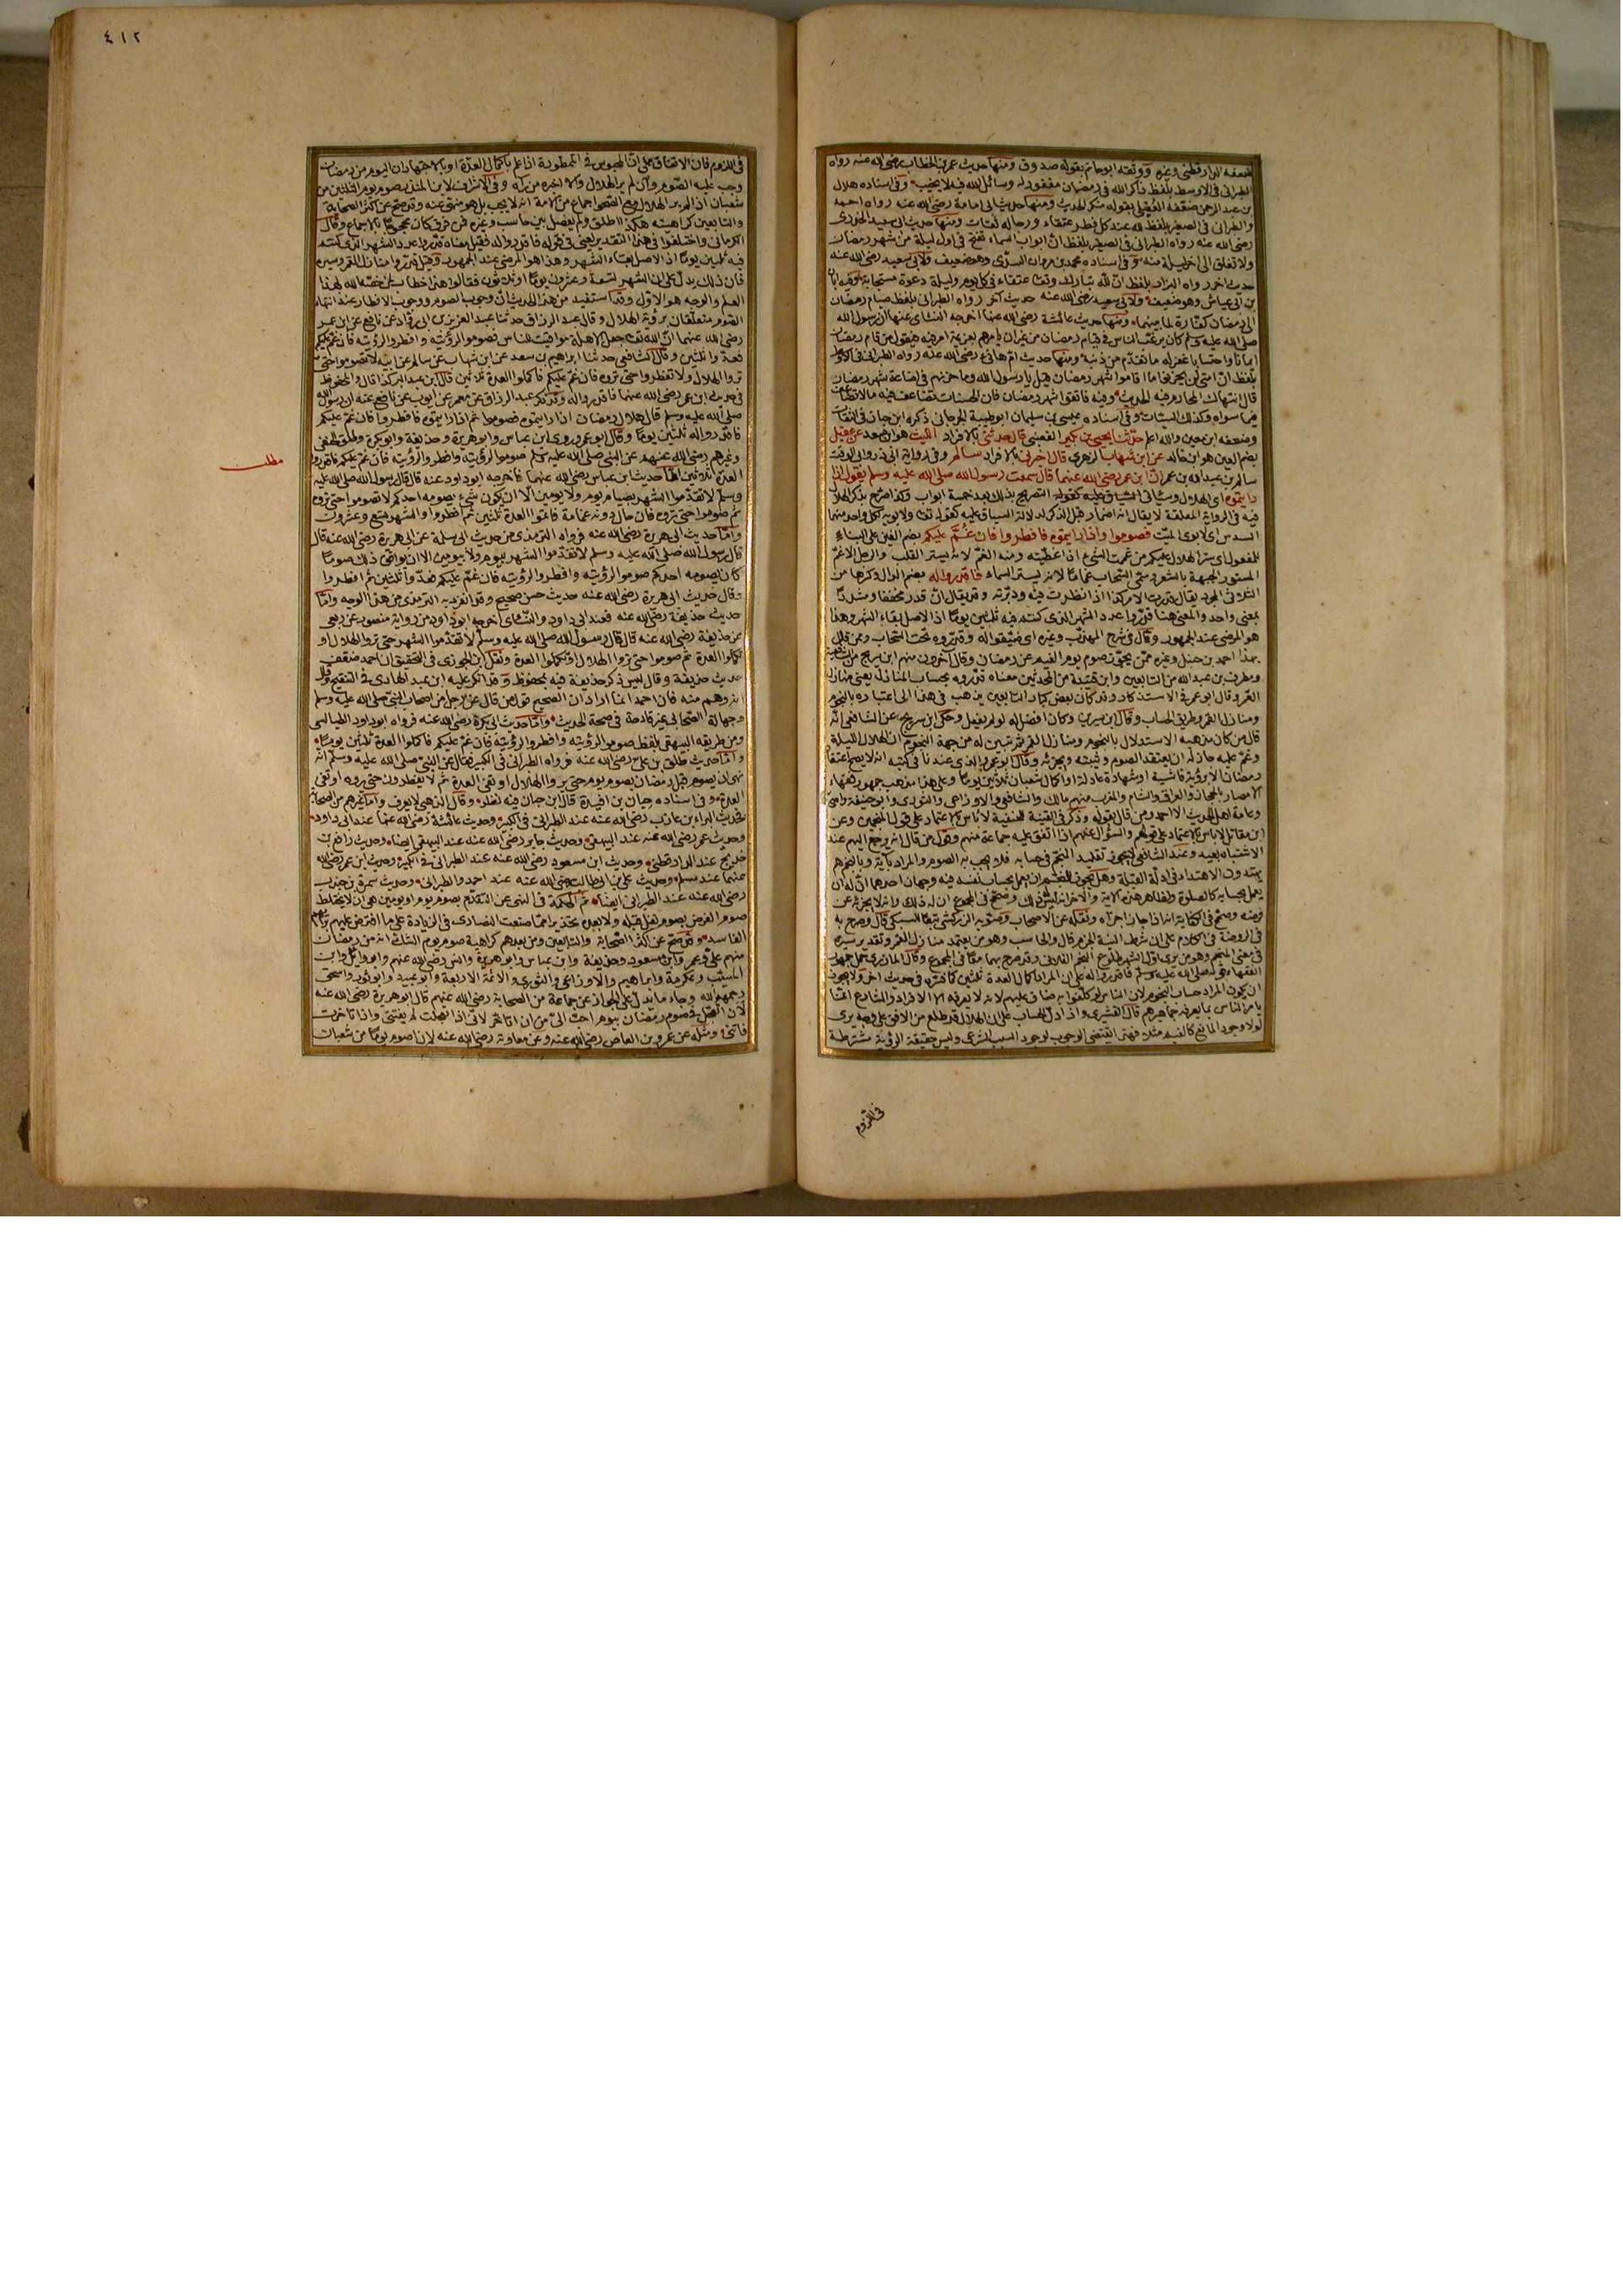 ضعفه الدارقطني وغيره ووثقه ابو حاتم بقوله صدوق ومنها حديث عمر بن الخطاب رضي الله عنه رواه
الطبراني في الاوسط بلفظ ذاكر الله في رمضان مغفور له وسائل الله فيه لا يخيب وفي اسناده هلال
بن عبد الرحمن ضعفه العقيلي بقوله منكر الحديث ومنها حديث ابي امامة رضي الله عنه رواه احمد
والطبراني في الصغير بلفظ لله عند كل فطر عتقاء ورجاله ثقات ومنها حديث ابي سعيد الخدري
رضي الله عنه رواه الطبراني في الصغير بلفظ ان ابواب السماء تفتح في اول ليلة من شهر رمضان
ولا تغلق الى اخر ليلة منه وفي اسناده محمد بن مروان السدي وهو ضعيف ولابي سعيد رضي الله عنه
حديث اخر رواه البزار بلفظ ان لله تبارك وتعالى عتقاء في كل يوم وليلة دعوة مستجابة وفيه ابان
بن ابي عياش وهو ضعيف ولابي سعيد رضي الله عنه حديث آخر رواه الطبراني بلفظ صيام رمضان
الى رمضان كفارة لما بينهما ومنها حديث عائشة رضي الله عنها اخرجه النسائي عنها ان رسول الله
صلى الله عليه وسلم كان يرغب الناس في قيام رمضان من غير ان يامرهم بعزيمة امر فيه فيقول من قام رمضان
ايمانا واحتسابا غفر له ما تقدم من ذنبه ومنها حديث ام هانئ رضي الله عنه رواه الطبراني في الاوسط
بلفظ ان امتي لن يخزوا ما اقاموا شهر رمضان قيل يا رسول الله وما خزيهم في اضاعة شهر رمضان
قال انتهاك المحارم فيه الحديث وفيه فاتقوا شهر رمضان فان الحسنات تضاعف فيه ما لا تضاعف
فيما سواه وكذلك السيئات وفي اسناده عيسى بن سليمان ابو طيبة الجرجاني ذكره ابن حبان في الثقات
وضعفه ابن معين والله اعلم حدثنا يحيى بن بكير قال حدثني بالافراد الليث هو ابن سعد عن عقيل
بضم العين هو ابن خالد عن ابن شهاب الزهري قال اخبرني بالافراد سالم وفي رواية ابي ذر وابي الوقت
سالم بن عبد الله بن عمر ان ابن عمر رضي الله عنهما قال سمعت رسول الله صلى الله عليه وسلم يقول اذا
رايتموه اي الهلال
فيه في الرواية المعلقة لا يقال انه اضمار قبل الذكر لدلالة السياق عليه كقوله تعالى ولابويه لكل واحد منهما
السدس اي لابوي الميت فصوموا واذا رايتموه فافطروا فان غم عليكم بضم الغين على البناء
للمفعول اي ستر الهلال عليكم من غممت الشيء اذا غطيته ومنه الغم لانه يستر القلب والرجل الاغم
المستور الجبهة بالشعر وسمي السحاب غماما لانه يستر السماء فاقدروا له بضم الدال وكسرها من
بمعنى واحد والمعنى هنا قدروا عدد الشهر الذي كنتم فيه ثلثين يوما اذ الاصل بقاء الشهر وهذا
هو المرضي عند الجمهور وقال في شرح المهذب وغيره اي ضيقوا له وقدروه تحت السحاب وممن قال
بهذا احمد بن حنبل وغيره ممن يجوز صوم يوم الغيم عن رمضان وقال آخرون منهم ابن سريج من الشافعية
ومطرف بن عبد الله من التابعين وابن قتيبة من المحدثين معناه قدروه بحساب المنازل يعني منازل
القمر وقال ابو عمر في الاستذكار وقد كان بعض كبار التابعين يذهب في هذا الى اعتباره بالنجوم
ومنازل القمر وطريق الحساب وقال ابن سيرين وكان افضل له لو لم يفعل وحكى ابن سريج عن الشافعي انه
قال من كان مذهبه الاستدلال بالنجوم ومنازل القمر ثم تبين له من جهة النجوم ان الهلال الليلة
وغم عليه جاز له ان يعتقد الصوم ويبيته ويجزئه وقال ابو عمر والذي عندنا في كتبه انه لا يصح اعتقاد
رمضان الا برؤية فاشية او شهادة عادلة او اكمال شعبان ثلاثين يوما وعلى هذا مذهب جمهور فقهاء
الامصار بالحجاز والعراق والشام والمغرب منهم مالك والشافعي والاوزاعي والثوري وابو حنيفة واصحابه
وعامة اهل الحديث الا احمد ومن قال بقوله وذكر في القنية للحنفية لا باس بالاعتماد على قول المنجمين وعن
ابن مقاتل لا باس بالاعتماد على قولهم والسؤال عنهم اذا اتفق عليه جماعة منهم وقول من قال انه يرجع اليهم عند
الاشتباه بعيد وعند الشافعي لا يجوز تقليد المنجم في حسابه فلا يجب به الصوم والمراد بآية وبالنجم هم
يهتدون الاهتداء في ادلة القبلة وهل يجوز للمنجم ان يعمل بحساب نفسه فيه وجهان احدهما ان له ان
فرضه وصحح في الكفاية انه اذا جاز اجزاه ونقله عن الاصحاب وصوبه الزركشي تبعا للسبكي قال وصرح به
في الروضة في الكلام على ان شرط النية الجزم قال والحاسب وهو من يعتمد منازل القمر وتقدير سيره
في معنى المنجم وهو من يرى ان اول الشهر طلوع النجم الفلاني وقد صرح بهما معا في المجموع وقال المازري حمل جمهور
الفقهاء قوله صلى الله عليه وسلم فاقدروا له على ان المراد اكمال العدة ثلثين كما فسره في حديث اخر ولا يجوز
ان يكون المراد حساب النجوم لان الناس لو كلفوا به ضاق عليهم لانه لا يعرفه الا الافراد والشارع انما
يامر الناس بما يعرفه جماهيرهم قال القشيري واذا دل الحساب على ان الهلال قد طلع من الافق على وجه يرى
لولا وجود المانع كالغيم مثلا فهذا يقتضي الوجوب لوجود السبب الشرعي وليس حقيقة الرؤية مشترطة
في اللزوم
٤١٢
في اللزوم فان الاتفاق على ان المحبوس في المطمورة اذا علم باكمال العدة او بالاجتهاد ان اليوم من رمضان
وجب عليه الصوم وان لم ير الهلال ولا اخبره من رآه وفي الاشراف لابن المنذر صوم يوم الثلثين من
شعبان اذا لم ير الهلال مع الصحو اجماع من الامة انه لا يجب بل هو منهي عنه وقد صح عن اكثر الصحابة
والتابعين كراهيته هكذا اطلق ولم يفصل بين حاسب وغيره فمن فرق كان محجوجا بالاجماع وقال
الكرماني واختلفوا في هذا التقدير يعني في قوله فاقدروا له فقيل معناه قدروا عدد الشهر الذي كنتم
فيه ثلثين يوما اذ الاصل بقاء الشهر وهذا هو المرضي عند الجمهور وقيل قدروا منازل القمر وسيره
فان ذلك يدل على ان الشهر تسعة وعشرون يوما او ثلاثون فقالوا هذا خطاب لمن خصه الله لهذا
العلم والوجه هو الاول وقد استفيد من هذا الحديث ان وجوب الصوم ووجوب الافطار عند انتهاء
الصوم متعلقان برؤية الهلال وقال عبد الرزاق حدثنا عبد العزيز بن ابي رواد عن نافع عن ابن عمر
رضي الله عنهما ان الله تعالى جعل الاهلة مواقيت للناس فصوموا لرؤيته وافطروا لرؤيته فان غم عليكم
فعدوا ثلثين وقال الشافعي حدثنا ابراهيم بن سعد عن ابن شهاب عن سالم عن ابيه لا تصوموا حتى
تروا الهلال ولا تفطروا حتى تروه فان غم عليكم فاكملوا العدة ثلاثين قال ابن عبد البر كذا قال والمحفوظ
في حديث ابن عمر رضي الله عنهما فاقدروا له وقد ذكر عبد الرزاق عن معمر عن ايوب عن نافع عنه ان رسول الله
صلى الله عليه وسلم قال هلال رمضان اذا رايتموه فصوموا ثم اذا رايتموه فافطروا فان غم عليكم
فاقدروا له ثلثين يوما وقال ابو عمر وروى ابن عباس وابو هريرة وحذيفة وابو بكرة وطلق الحنفي
وغيرهم رضي الله عنهم عن النبي صلى الله عليه وسلم صوموا لرؤيته وافطروا لرؤيته فان غم عليكم فاقدروا
مطلب
العدة ثلاثين اما حديث ابن عباس رضي الله عنهما فاخرجه ابو داود عنه قال قال رسول الله صلى الله عليه
وسلم لا تقدموا الشهر بصيام يوم ولا يومين الا ان يكون شيء يصومه احدكم لا تصوموا حتى تروه
ثم صوموا حتى تروه فان حال دونه غمامة فاتموا العدة ثلثين ثم افطروا والشهر تسع وعشرون
واما حديث ابي هريرة رضي الله عنه فرواه الترمذي من حديث ابي سلمة عن ابي هريرة رضي الله عنه قال
قال رسول الله صلى الله عليه وسلم لا تقدموا الشهر بيوم ولا بيومين الا ان يوافق ذلك صوما
كان يصومه احدكم صوموا لرؤيته وافطروا لرؤيته فان غم عليكم فعدوا ثلثين ثم افطروا
وقال حديث ابي هريرة رضي الله عنه حديث حسن صحيح وقد انفرد به الترمذي من هذا الوجه واما
حديث حذيفة رضي الله عنه فعند ابي داود والنسائي اخرجه ابو داود من رواية منصور عن ربعي
عن حذيفة رضي الله عنه قال قال رسول الله صلى الله عليه وسلم لا تقدموا الشهر حتى تروا الهلال او
تكملوا العدة ثم صوموا حتى تروا الهلال او تكملوا العدة ونقل ابن الجوزي في التحقيق ان احمد ضعف
حديث حذيفة وقال ليس ذكر حذيفة فيه بمحفوظ وقد انكر عليه ابن عبد الهادي في التنقيح وقال
انه وهم منه فان احمد انما اراد ان الصحيح قول من قال عن رجل من اصحاب النبي صلى الله عليه وسلم
وجهالة الصحابي غير قادحة في صحة الحديث واما حديث ابي بكرة رضي الله عنه فرواه ابو داود الطيالسي
ومن طريقه البيهقي بلفظ صوموا لرؤيته وافطروا لرؤيته فان غم عليكم فاكملوا العدة ثلثين يوما
واما حديث طلق بن علي رضي الله عنه فرواه الطبراني في الكبير فقال عن النبي صلى الله عليه وسلم انه
نهى ان يصوم قبل رمضان بصوم يوم حتى يروا الهلال او تفي العدة ثم لا يفطرون حتى يروه او تفي
العدة وفي اسناده حبان بن رفيدة قال ابن حبان فيه نظر وقال الذهبي لا يعرف واما غيرهم من الصحابة
فحديث البراء بن عازب رضي الله عنه عند الطبراني في الكبير وحديث عائشة رضي الله عنها عند ابي داود
وحديث عمر رضي الله عنه عند البيهقي وحديث جابر رضي الله عنه عند البيهقي ايضا وحديث رافع بن
خديج عند الدارقطني وحديث ابن مسعود رضي الله عنه عند الطبراني في الكبير وحديث ابن عمر رضي الله
عنهما عند مسلم وحديث علي بن ابي طالب رضي الله عنه عند احمد والطبراني وحديث سمرة بن جندب
رضي الله عنه عند الطبراني ايضا ثم الحكمة في النهي عن التقدم بصوم يوم او يومين هي ان لا يختلط
صوم الفرض بصوم نفل قبله ولا بعده تحذيرا مما صنعت النصارى في الزيادة على ما افترض عليهم برايهم
الفاسد وقد صح عن اكثر الصحابة والتابعين ومن بعدهم كراهية صوم يوم الشك انه من رمضان
منهم علي وعمر وابن مسعود وحذيفة وابن عباس وابو هريرة وانس رضي الله عنهم وابو وائل وابن
المسيب وعكرمة وابراهيم والاوزاعي والثوري والائمة الاربعة وابو عبيد وابو ثور واسحق
رحمهم الله وجاء ما يدل على الجواز عن جماعة من الصحابة رضي الله عنهم قال ابو هريرة رضي الله عنه
لان اتعجل في صوم رمضان بيوم احب الي من ان اتاخر لاني اذا تعجلت لم يفتني واذا تاخرت
فاتني ومثله عن عمرو بن العاص رضي الله عنه وعن معاوية رضي الله عنه لان اصوم يوما من شعبان